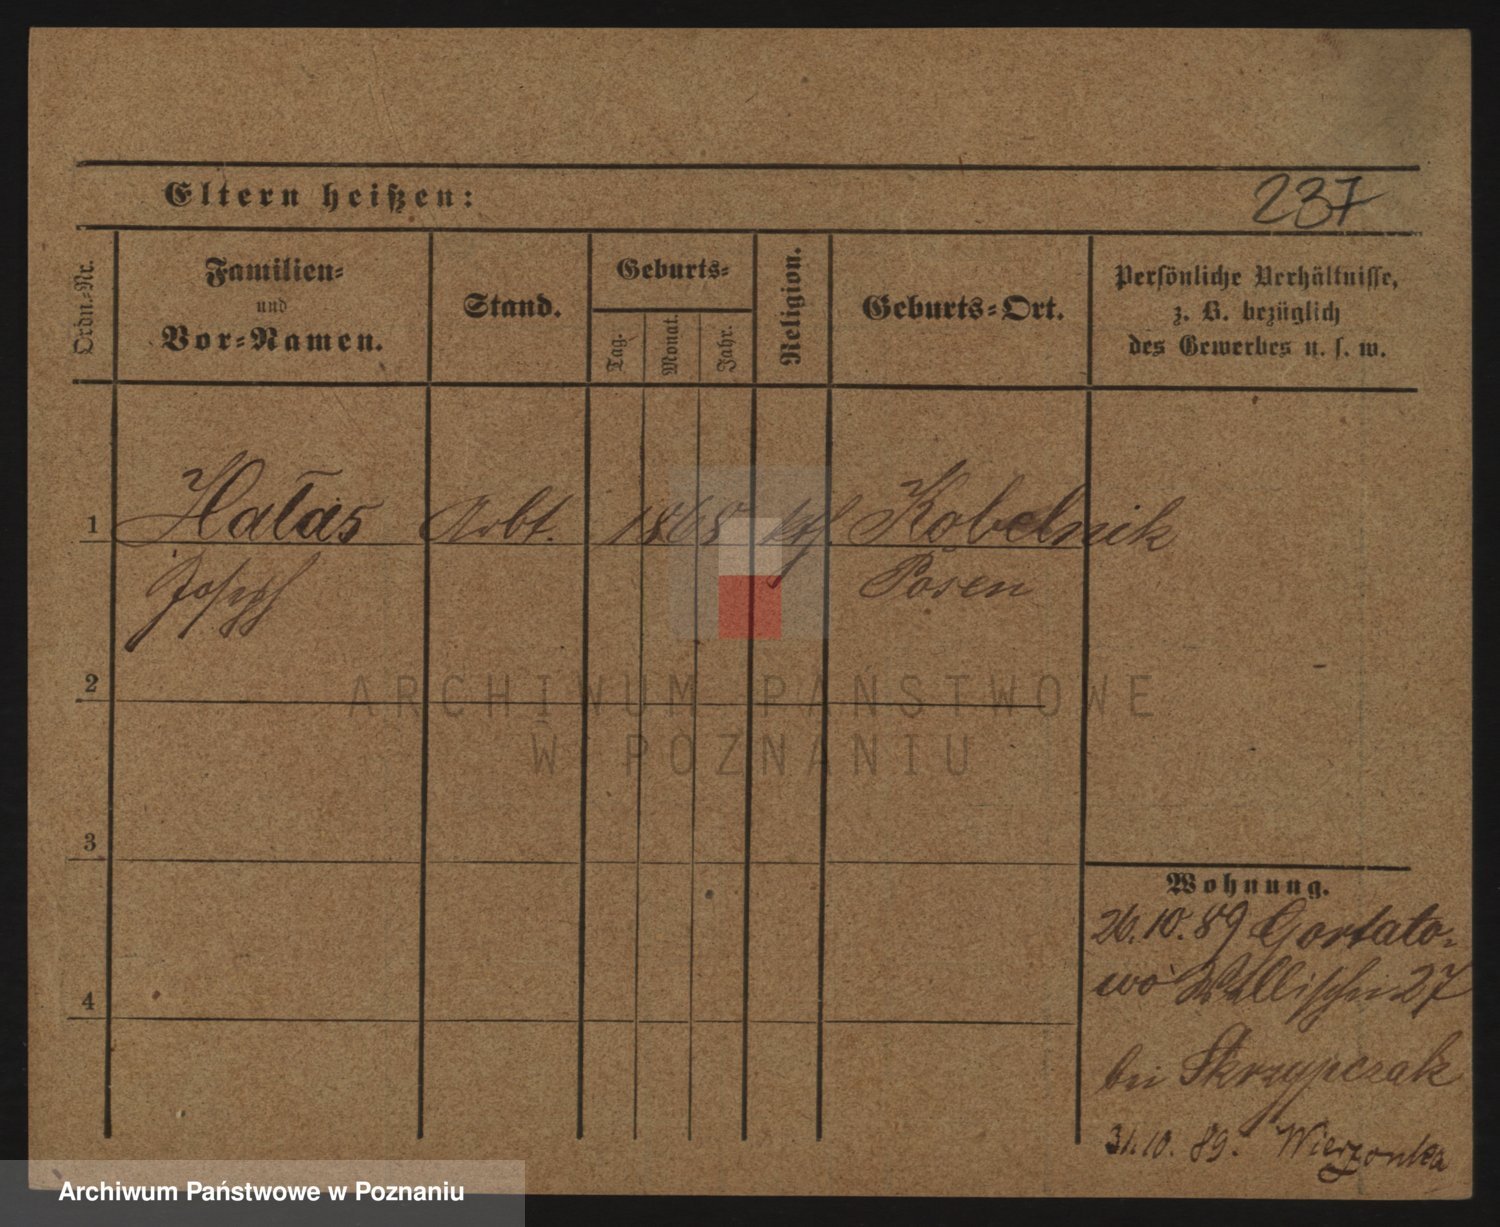 237
Eltern heißen:
Ordn=Nr.
Familien=
und
Vor=Namen.
Stand.
Geburts=
Tag.
Monat.
Jahr.
Religion.
Geburts=Ort.
Persönliche Verhältnisse,
z. B. bezüglich
des Gewerbes u. s. w.
1 Hałas Arbt. 1868 kth. Kobelnik
Joseph Posen
2
ARCHIWUM PAŃSTWOWE
W POZNANIU
3
Wohnung.
26.10.89 Gortato=
wo Wallischei 27
4
bei Skrzypczak
31.10.89. Wierzonka
Archiwum Państwowe w Poznaniu